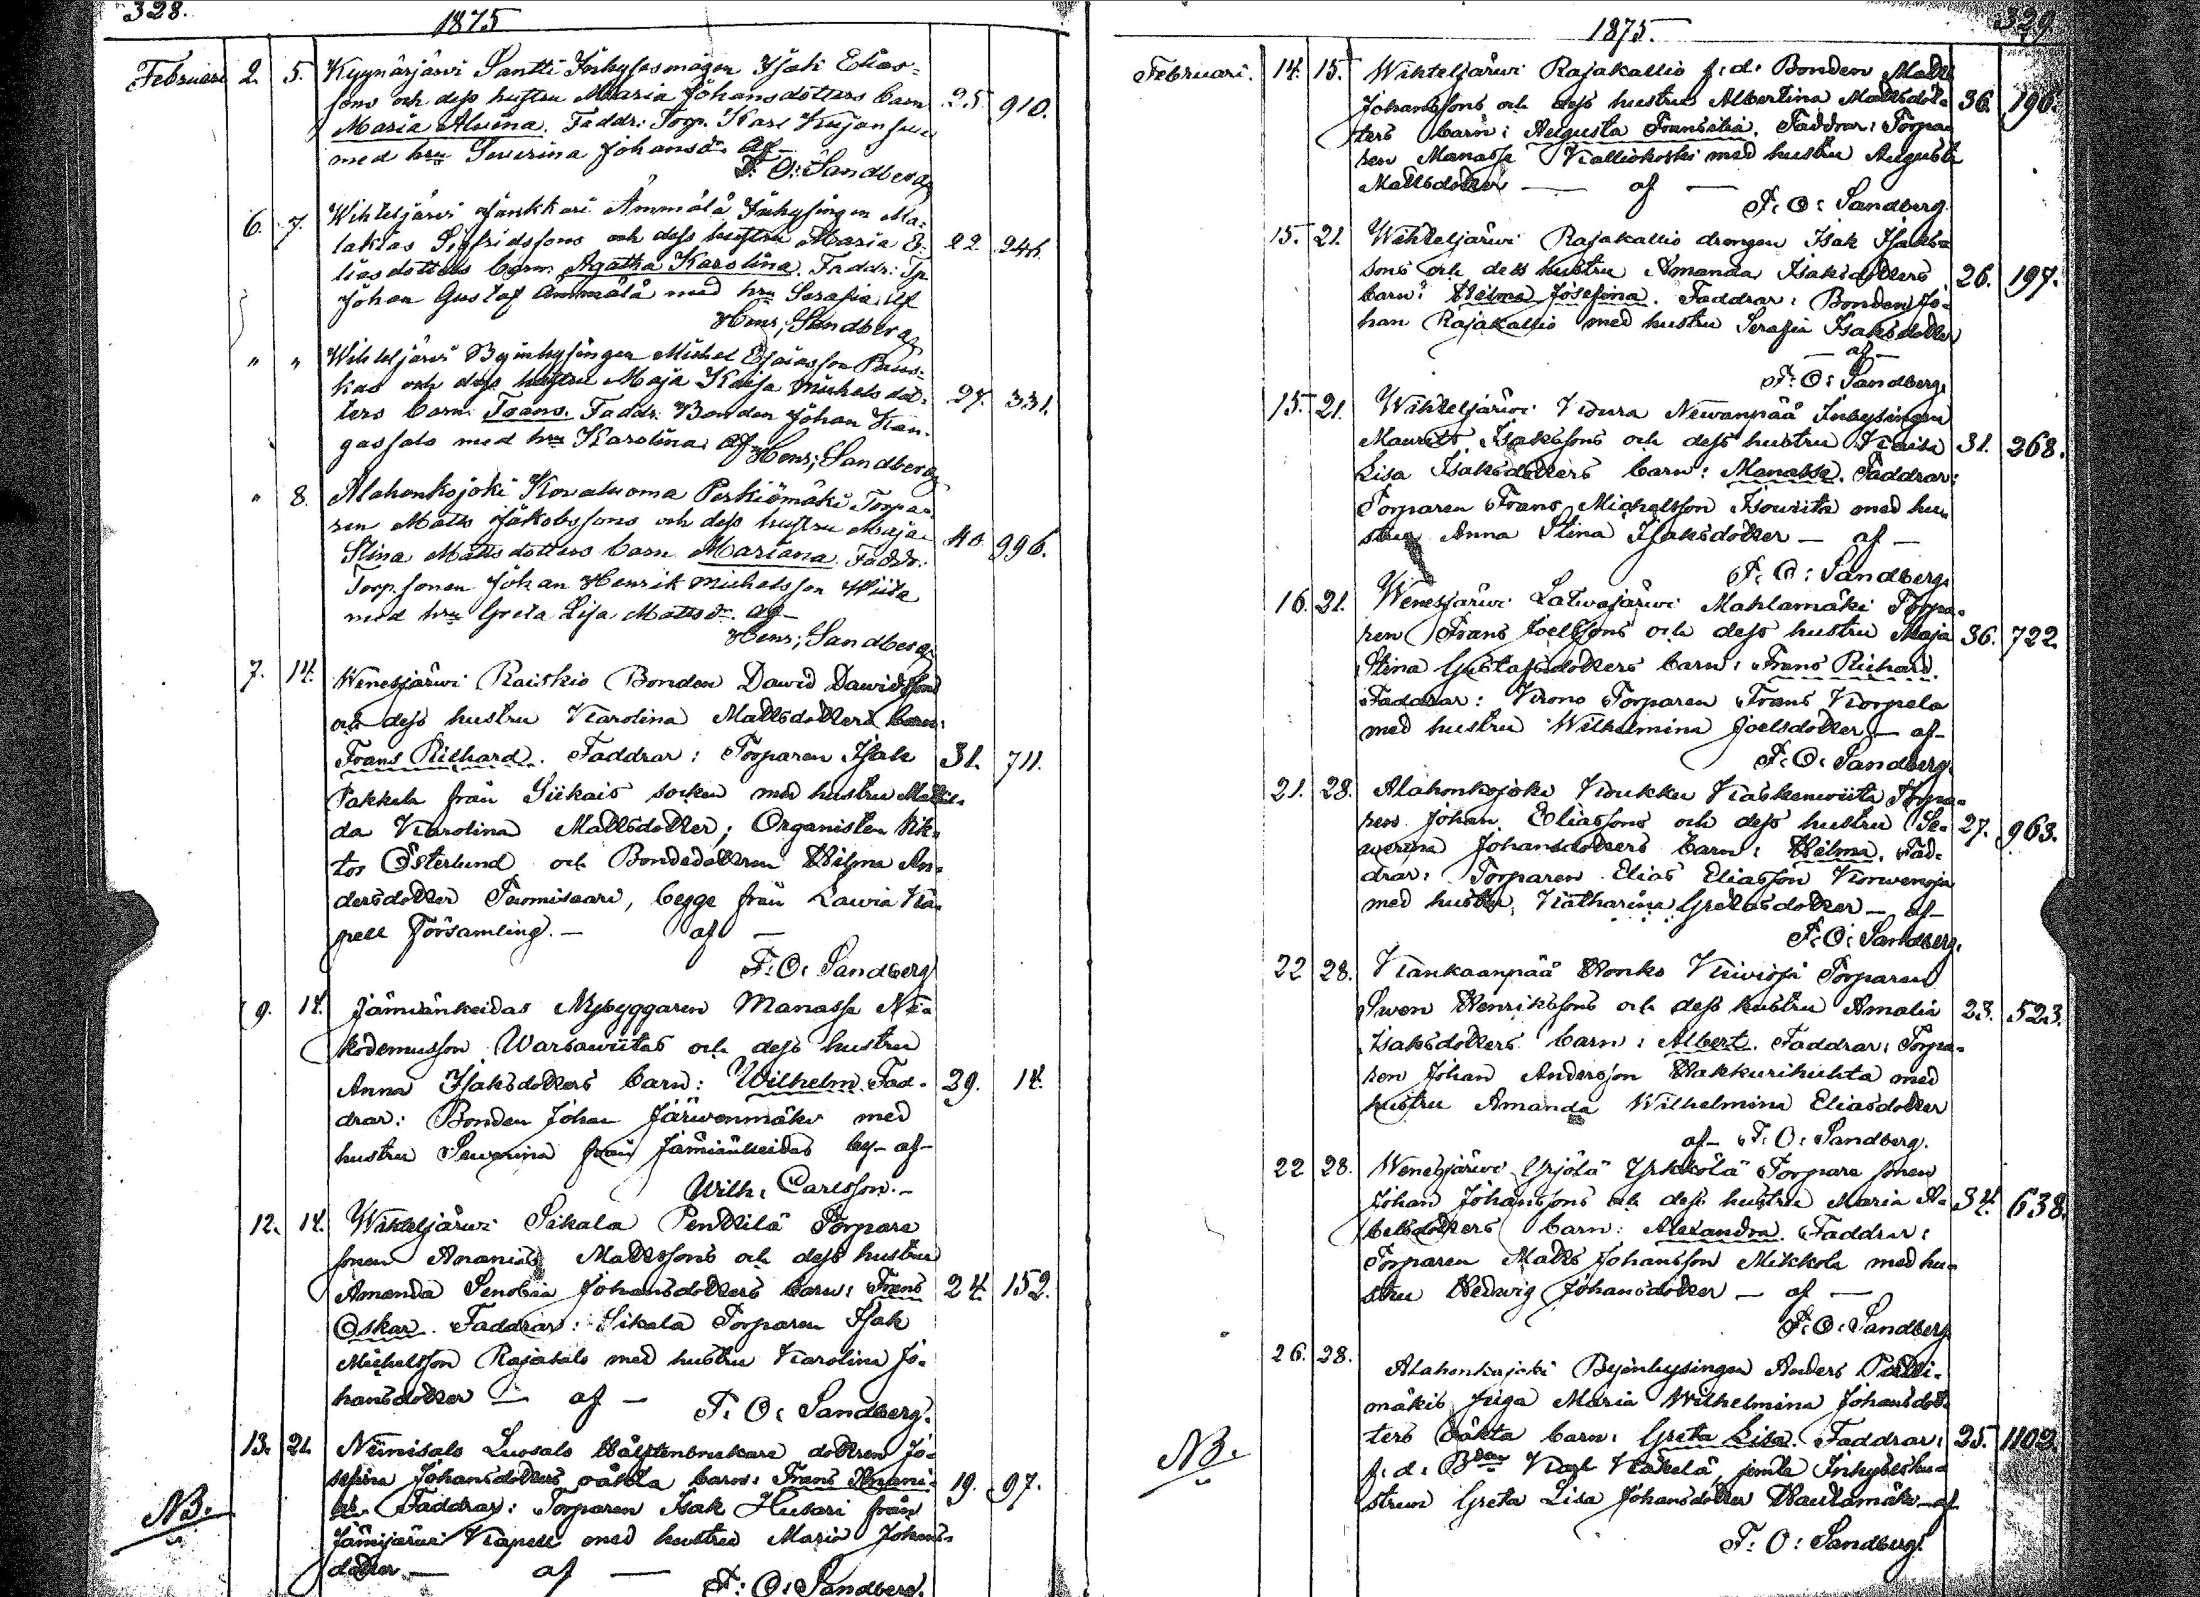 328.
1875
Februari 2. 5. Kyynärjärvi Santti Inhysesmågen Isak Elias-
sons och dess hustru Maria Johansdotters barn 25. 910.
Maria Alvina. Faddr: Torp. Karl Kujansuu
med hru Severina Johansdr. Af
F. O: Sandberg
6. 7. Wihteljärvi Jankkari Ämmälä Inhysingen Ma-
lakias Sigfridssons och dess hustru Maria E- 22 246.
liasdotters barn Agatha Karolina. Faddr: Tp
Johan Gustaf Ämmälä med hru Serafia. Af
Henr; Sandberg
" " Wihteljärvi Byinhysingen Michel Esaiasson
kas och dess hustru Maja Kaisa Michelsdot- 27. 331.
ters barn Frans. Faddr. Bonden Johan Kan-
gassalo med hru Karolina. Af Henr; Sandberg
" 8. Alahonkojoki Kovaluoma Perkiömäki Torpa-
ren Matts Jakobssons och dess hustru Maja 40 996.
Stina Mattsdotters barn Mariana. Faddr:
Torp.sonen Johan Henrik Michelsson Wiita
med hru Greta Lisa Mattsdr. Af
Henr; Sandberg
7. 14. Wenesjärwi Raiskio Bonden Dawid Dawidssons
och dess hustru Karolina Mattsdotters barn:
Frans Richard. Faddrar: Torparen Isak 31. 711.
Pakkala från Siikais socken med hustru Mathil-
da Karolina Mattsdotter; Organisten Vik-
tor Österlund och Bondedottren Hilma An-
dersdotter Tuomisaari, begge från Lawia Ka-
pell Församling. — af —
F: O: Sandberg
9. 14. Jämiänkeidas Nybyggaren Manasse Ni-
kodemusson Warsawiitas och dess hustru
Anna Isaksdotters barn: Wilhelm. Fad- 29. 14.
drar: Bonden Johan Järwenmäki med
hustru Sewerina från Jämiänkeidas by- af-
Wilh: Carlsson.-
12. 14. Wihteljärwi Sikala Penttilä Torpare
sonen Ananias Mattssons och dess hustru
Amanda Senobia Johansdotters barn: Frans 24. 152.
Oskar. Faddrar: Sikala Torparen Isak
Michelsson Rajasalo med hustru Karolina Jo-
hansdotter — af — F: O: Sandberg.
13. 21. Niinisalo Luosalo Hälftenbrukare dottren Jo-
sefina Johansdotters oäkta barn: Frans Anani- 19. 97.
as. Faddrar: Torparen Isak Husari från
NB. Jämijärwi Kapell med hustru Maria Johans-
dotter — af — F: O: Sandberg.
329.
1875.
Februari. 14. 15. Wihteljärwi Rajakallio f: d: Bonden Matts
Johanssons och dess hustrus Albertina Mattsdot- 36. 196.
ters barn: Augusta Fransilia. Faddrar: Torpa-
ren Manasse Kalliokoski med hustru Augusta
Mattsdotter — af —
F: O: Sandberg.
15. 21. Wihteljärwi Rajakallio drengen Isak Isaks-
sons och dess hustru Amanda Isaksdotters 26. 197.
barn: Helma Josefina. Faddrar: Bonden Jo-
han Rajakallio med hustru Serafia Isaksdotter
— af —
F: O: Sandberg.
15. 21. Wihteljärwi Kiura Newanpää Inhysingen
Maurits Isakssons och dess hustru Kaisa 31. 268.
Lisa Isaksdotters barn: Manasse. Faddrar:
Torparen Frans Michelsson Isowiita med hu-
stru Anna Stina Isaksdotter — af —
F: O: Sandberg.
16. 21. Wenesjärwi Latwajärwi Mahlamäki Torpa-
ren Frans Joelssons och dess hustru Maja 36. 722.
Stina Gustafsdotters barn: Frans Richard.
Faddrar: Krono Torparen Frans Korpela
med hustru Wilhelmina Joelsdotter — af-
F: O: Sandberg.
21. 28. Alahonkojoki Kiukku Kaskenwiita Torpa-
ren Johan Eliassons och dess hustru Se- 27. 963.
werina Johansdotters barn: Helma. Fad-
drar: Torparen Elias Eliasson Korwenoja
med hustru Katharina Gretasdotter — af-
F: O: Sandberg.
22 28. Kankaanpää Honko Kiwioja Torparen
Swen Henrikssons och dess hustru Amalia 23. 523.
Isaksdotters barn: Albert. Faddrar: Torpa-
ren Johan Andersson Hakkurihuhta med
hustru Amanda Wilhelmina Eliasdotter
af- F: O: Sandberg.
22 28. Wenesjärwi Yrjölä Yrkkölä Torpare sonen
Johan Johanssons och dess hustru Maria A- 34. 638.
belsdotters barn: Alexandra. Faddrar:
Torparen Matts Johansson Mikkola med hu-
stru Hedwig Johansdotter — af —
F: O: Sandberg
26. 28. Alahonkojoki Byinhysingen Anders
mäkis piga Maria Wilhelmina Johansdot-
NB. ters oäkta barn: Greta Lisa. Faddrar: 25. 1102.
f: d: Bden Karl Kakelä jemte Inhyseshu-
strun Greta Lisa Johansdotter Hautamäki - af
F: O: Sandberg.